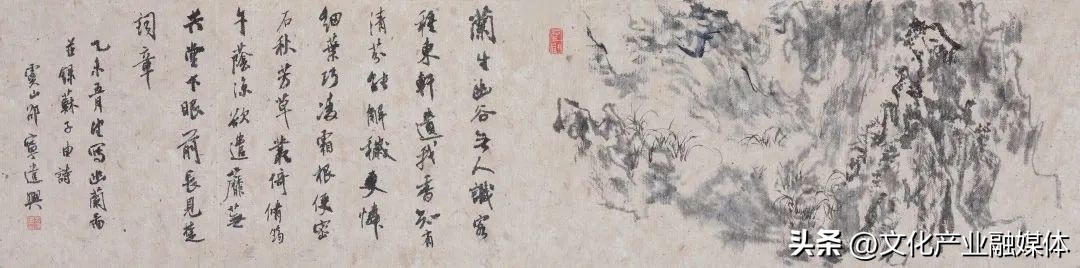 蘭生幽谷无人識客
種東軒遺我香知有
清芬能解穢更憐
細葉巧凌霜根便密
石秋芳草叢倚脩筠
午蔭涼欲遣蘼蕪
共堂下眼前長見楚
詞章
乙未五月寫幽蘭
並錄蘇子由詩
虞山邵寧遣興
头条 @文化产业融媒体